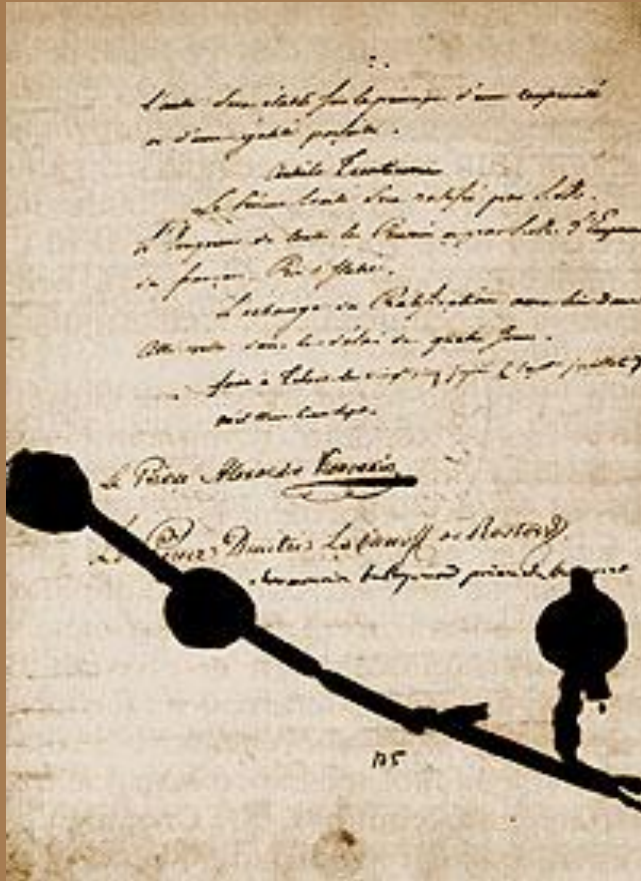 l'autre sera établi sur le principe d'une réciprocité
et d'une égalité parfaite.
Article
Le présent traité sera ratifié par S. M.
l'Empereur de toutes les Russies et par S. M. l'Empereur
des français, Roi d'Italie.
L'échange des Ratifications aura lieu dans
cette ville dans le délai de quatre jours.
fait à Tilsit le juillet
mil huit cent sept.
Le Prince Alexandre Kourakin
Le Prince Dimitry Labanoff de Rostoff
prince de